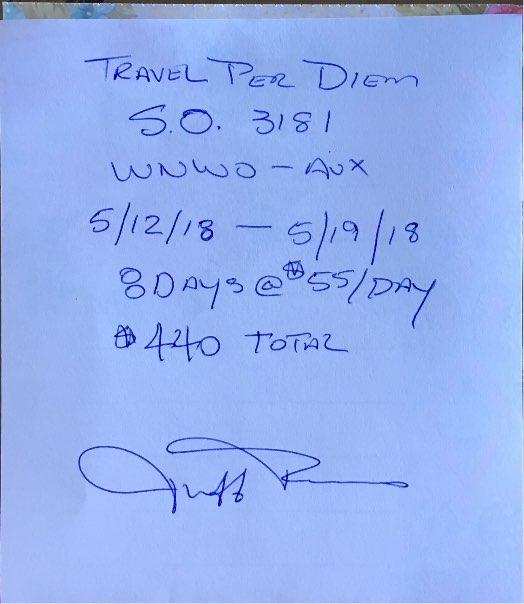 TRAVEL PER DIEM
S.O. 3181
WNWO - AUX
5/12/18 - 5/19/18
8 DAYS @ $55/DAY
$440 TOTAL